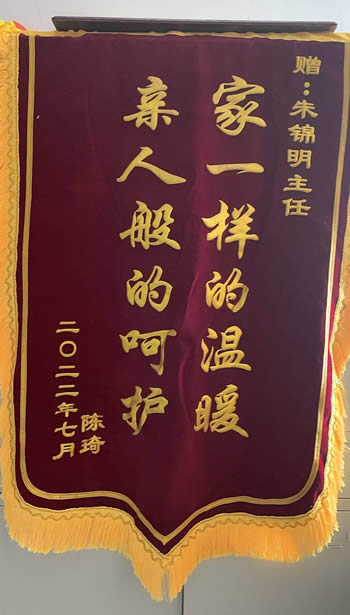 赠:朱锦明主任
家一样的温暖
亲人般的呵护
陈琦
二〇二二年七月